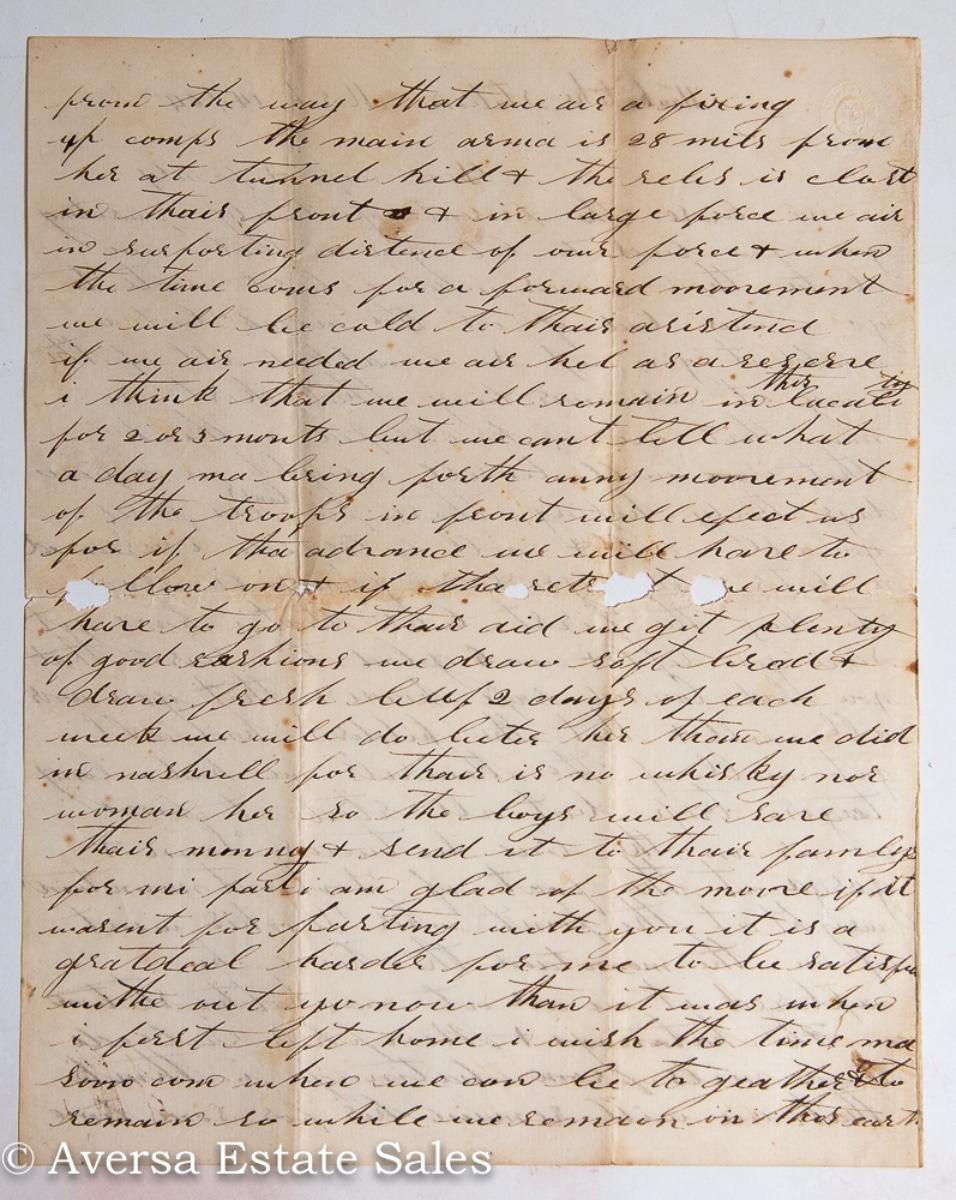 from the way that we air a fixing
up comps the main arma is 28 mils from
her at tunnel hill & the rebs is clost
in thair front & in large force we air
in surporting distence of our force & when
the time coms for a forward moovement
we will be cold to thair asistend
if we air needed we air hel as a reserve
i think that we will remain in this locality
for 2 or 3 monts but we cant tell what
a day ma bring forth anny moovement
of the troops in front will efect us
for if tha advance we will have to
follow on & if tha retreat we will
have to go to thair aid we get plenty
of good rashions we draw soft bread &
draw fresh beef 2 days of each
week we will do beter her than we did
in nashvell for thair is no whisky nor
woman her so the boys will save
thair monny & send it to thair familys
for mi part i am glad of the moove if it
warent for parting with you it is a
gratdeal harder for me to be satisfi
withe out yo now than it was when
i ferst left home i wish the time ma
soon com when we can be to geather & to
remain so while we remain on this earth
© Aversa Estate Sales